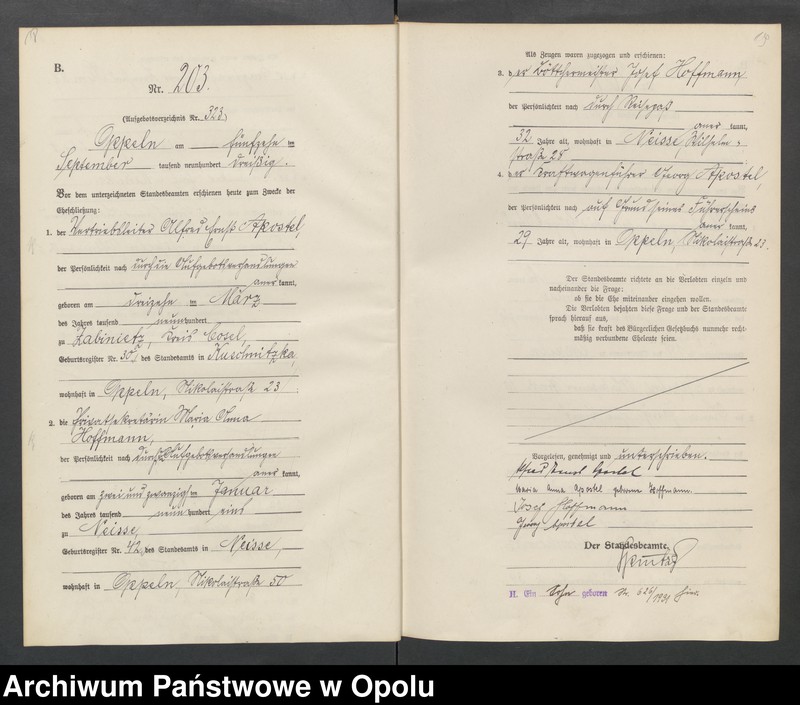 18
B.
Nr. 203.
(Aufgebotsverzeichnis Nr. 323)
Oppeln am fünfzehn ten
September tausend neunhundert dreißig.
Vor dem unterzeichneten Standesbeamten erschienen heute zum Zwecke der
Eheschließung:
1. der Vertriebsleiter Alfred Ernst Apostel,
der Persönlichkeit nach durch die Aufgebotsverhandlungen
anerkannt,
geboren am dreizehn ten März
des Jahres tausend neunhundert
zu Zabinietz, Kreis Cosel,
Geburtsregister Nr. 30, des Standesamts in Kuschnitzka,
wohnhaft in Oppeln, Nikolaistraße 23
2. die Privatsekretärin Maria Anna
Hoffmann,
der Persönlichkeit nach durch Aufgebotsverhandlungen
anerkannt,
geboren am zwei und zwanzigsten Januar
des Jahres tausend neunhundert eins
zu Neisse,
Geburtsregister Nr. 42, des Standesamts in Neisse,
wohnhaft in Oppeln, Nikolaistraße 50
19
Als Zeugen waren zugezogen und erschienen:
3. der Böttchermeister Josef Hoffmann,
der Persönlichkeit nach durch Reisepaß
anerkannt,
32 Jahre alt, wohnhaft in Neisse Wilhelm-
straße 28
4. der Kraftwagenführer Georg Apostel,
der Persönlichkeit nach auf Grund seines Führerscheins
anerkannt,
29 Jahre alt, wohnhaft in Oppeln, Nikolaistraße 23.
Der Standesbeamte richtete an die Verlobten einzeln und
nacheinander die Frage:
ob sie die Ehe miteinander eingehen wollen.
Die Verlobten bejahten diese Frage und der Standesbeamte
sprach hierauf aus,
daß sie kraft des Bürgerlichen Gesetzbuchs nunmehr recht-
mäßig verbundene Eheleute seien.
Vorgelesen, genehmigt und unterschrieben.
Alfred Ernst Apostel
Maria Anna Apostel geborene Hoffmann.
Josef Hoffmann
Georg Apostel
Der Standesbeamte.
H. Ein Sohn geboren Nr. 626/1931 hier.
Archiwum Państwowe w Opolu